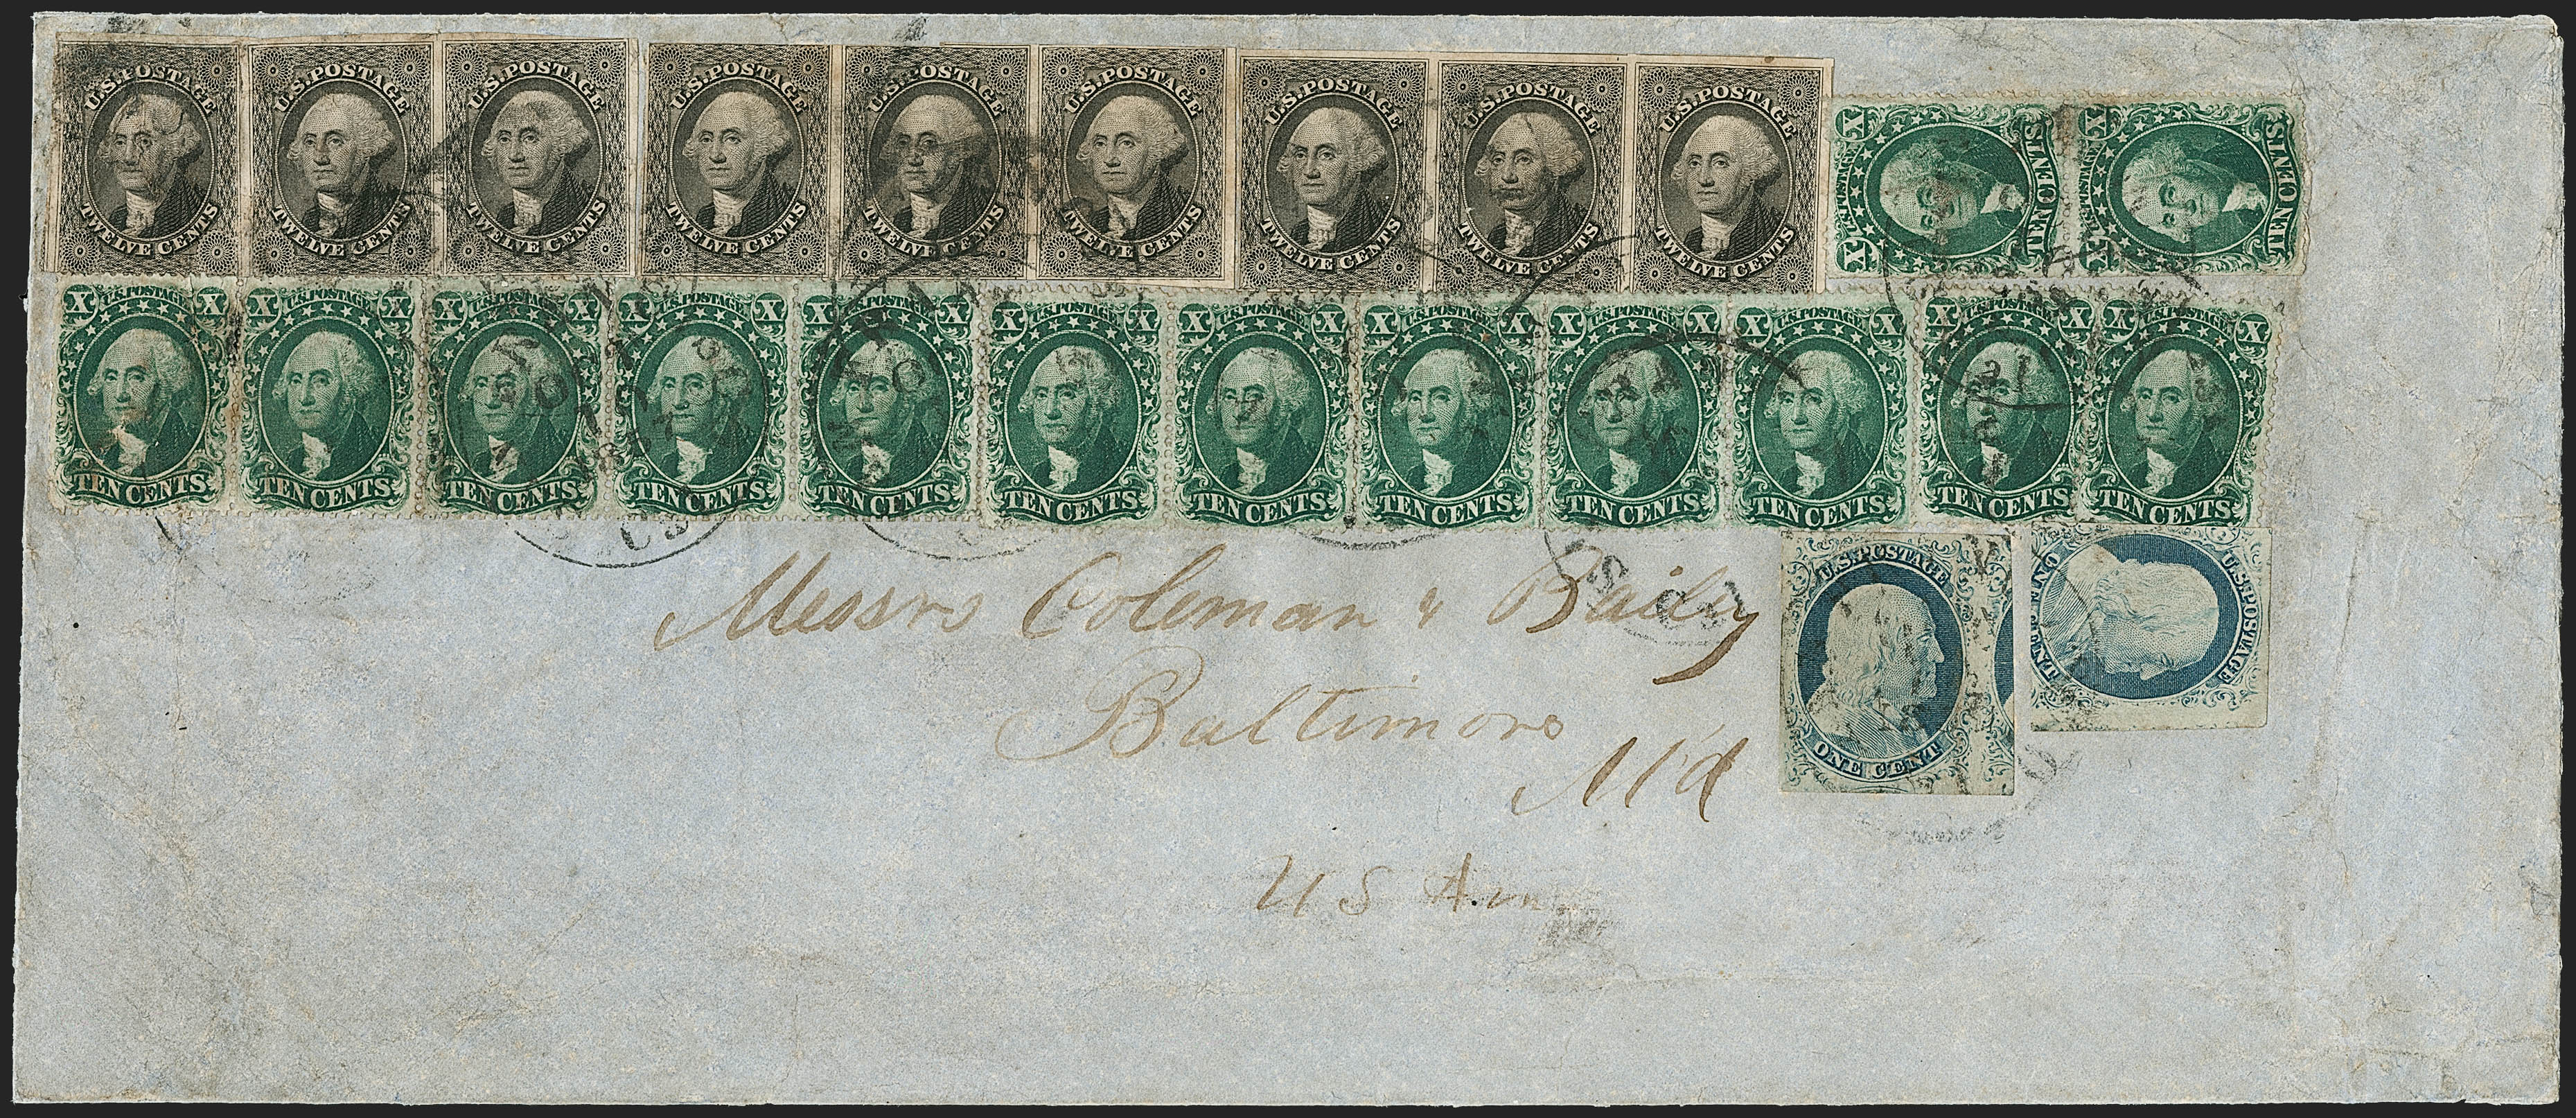 U.S. POSTAGE U.S. POSTAGE U.S. POSTAGE U.S. POSTAGE U.S. POSTAGE U.S. POSTAGE U.S. POSTAGE U.S. POSTAGE U.S. POSTAGE
TWELVE CENTS TWELVE CENTS TWELVE CENTS TWELVE CENTS TWELVE CENTS TWELVE CENTS TWELVE CENTS TWELVE CENTS TWELVE CENTS
X U.S. POSTAGE X
TEN CENTS
X U.S. POSTAGE X
TEN CENTS
X U.S. POSTAGE X X U.S. POSTAGE X X U.S. POSTAGE X X U.S. POSTAGE X X U.S. POSTAGE X X U.S. POSTAGE X X U.S. POSTAGE X X U.S. POSTAGE X X U.S. POSTAGE X X U.S. POSTAGE X X U.S. POSTAGE X X U.S. POSTAGE X
TEN CENTS TEN CENTS TEN CENTS TEN CENTS TEN CENTS TEN CENTS TEN CENTS TEN CENTS TEN CENTS TEN CENTS TEN CENTS TEN CENTS
Messrs Coleman & Baily
Baltimore
Md
U S Am
U.S. POSTAGE
ONE CENT
U.S. POSTAGE
ONE CENT